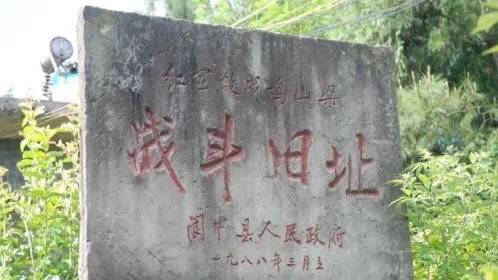 红军战山梁
战斗旧址
阆中县人民政府
一九八八年三月立